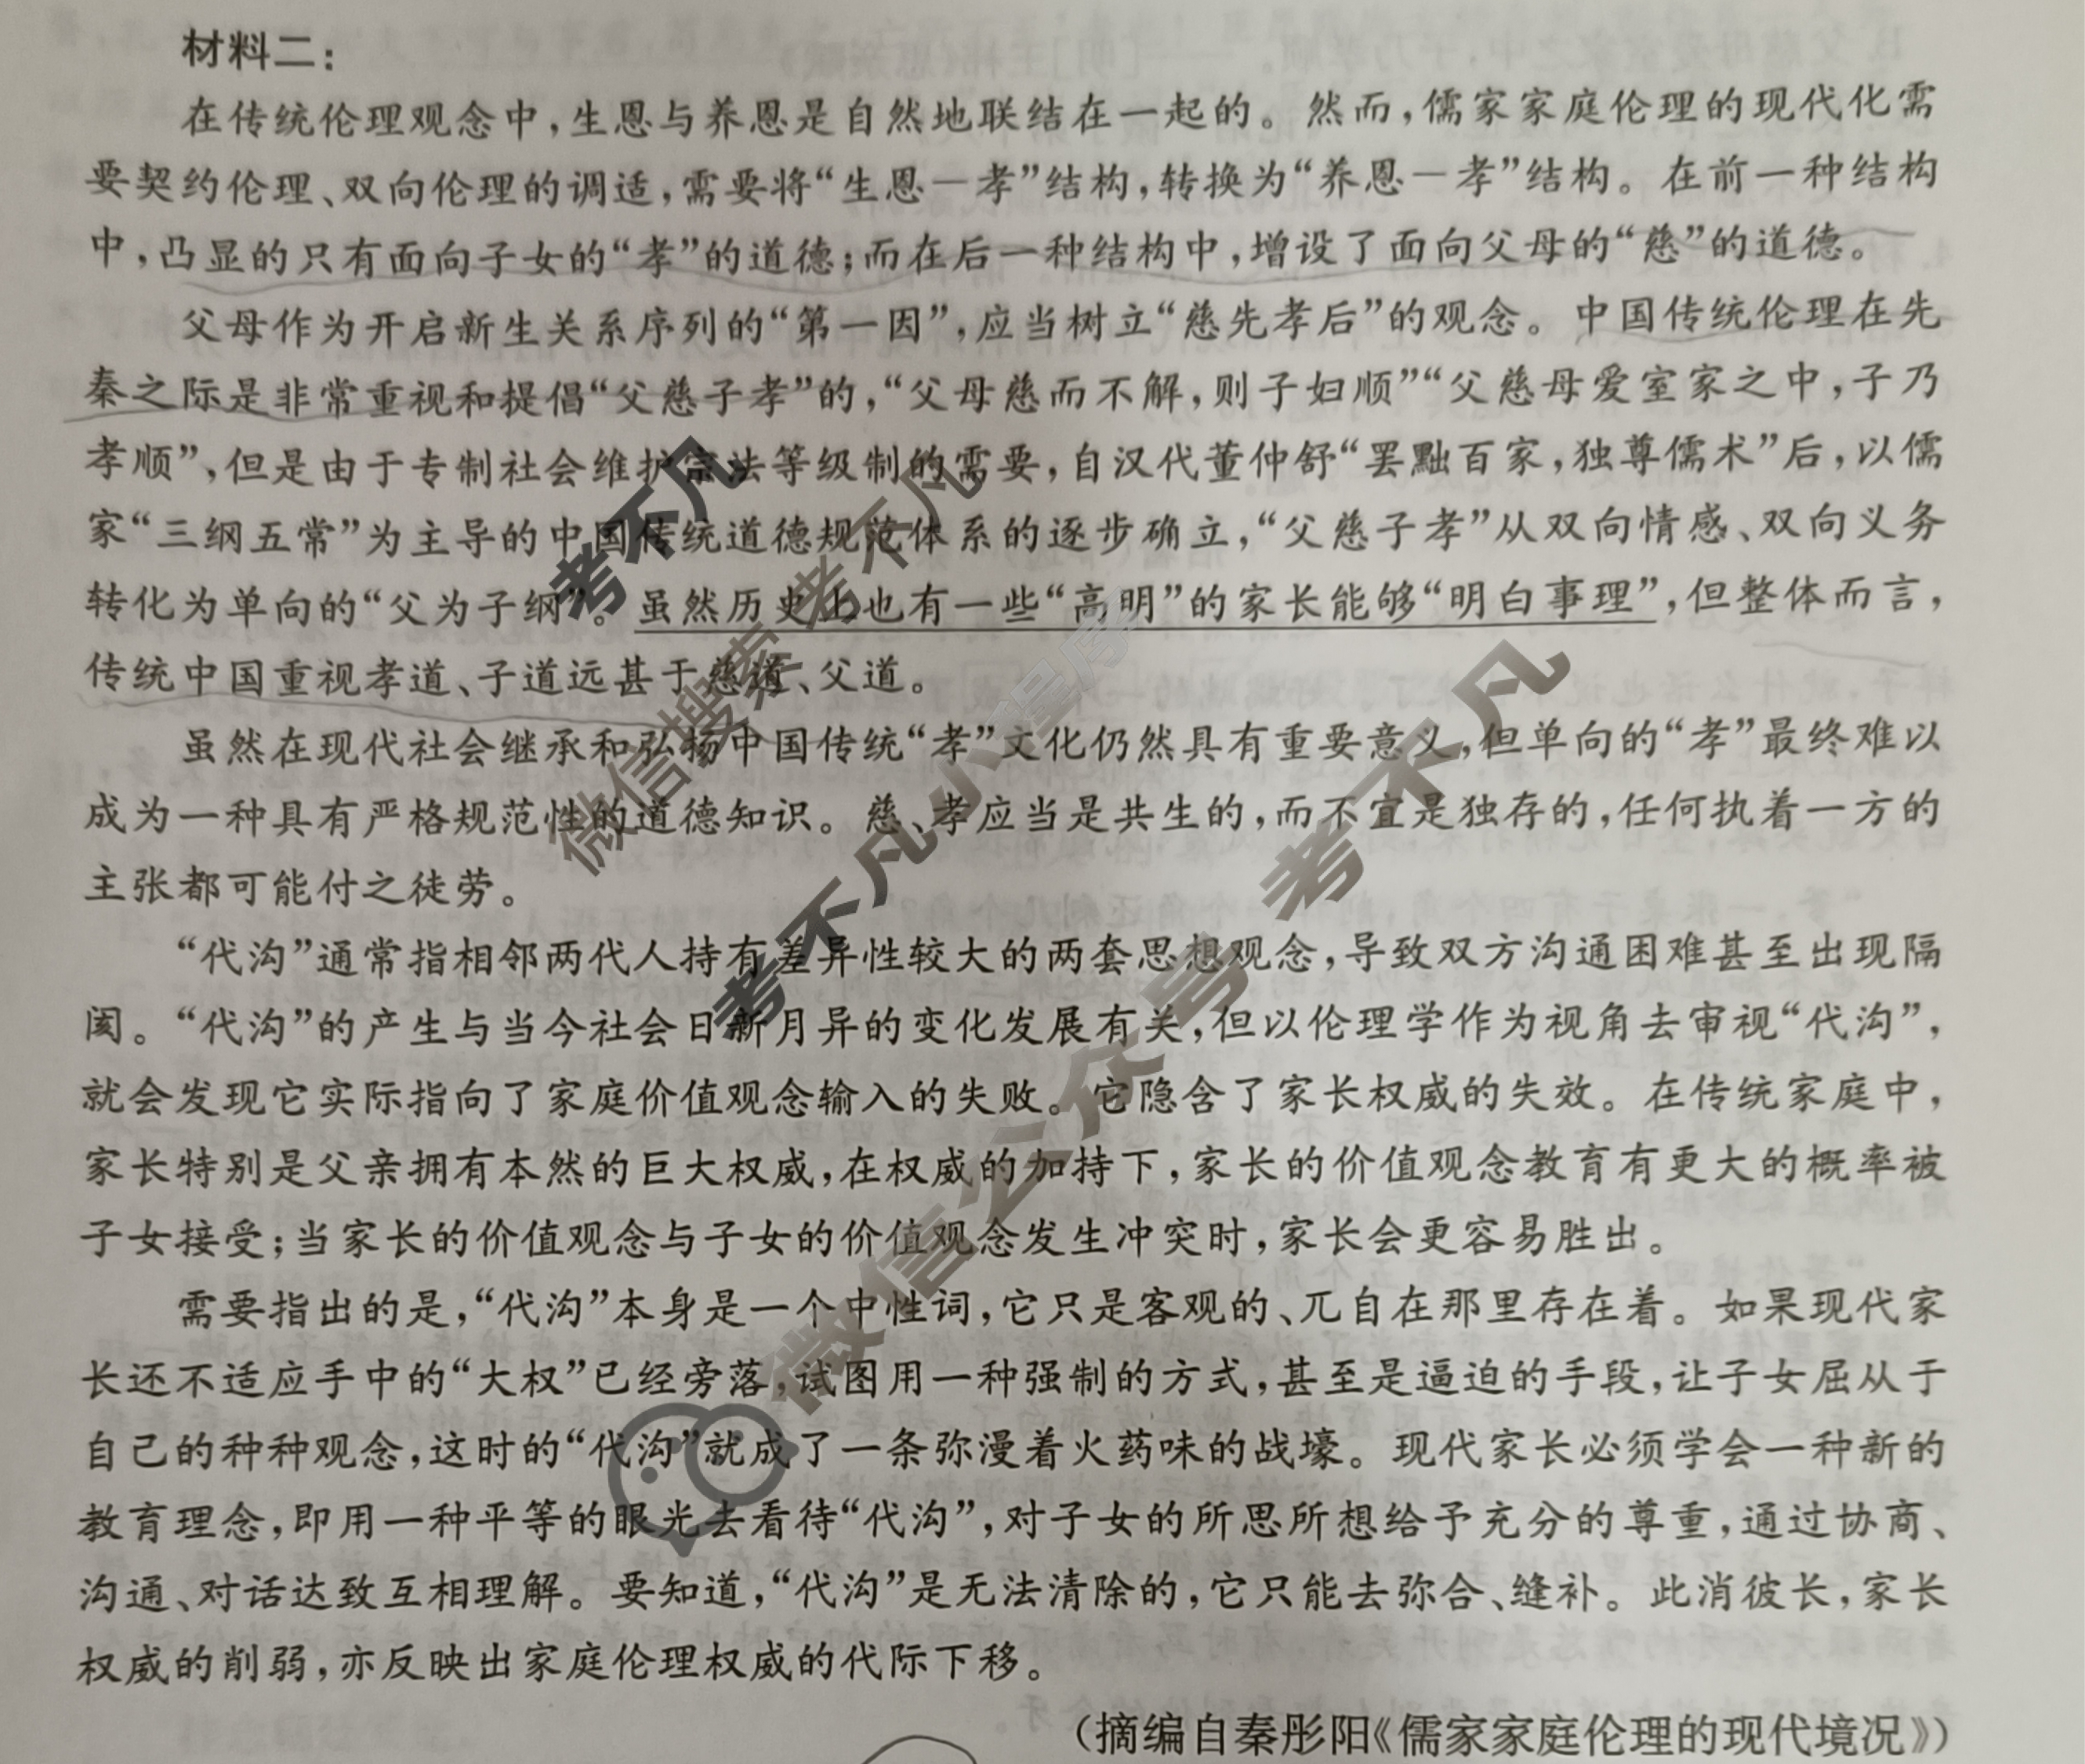 材料二：
在传统伦理观念中，生恩与养恩是自然地联结在一起的。然而，儒家家庭伦理的现代化需
要契约伦理、双向伦理的调适，需要将“生恩－孝”结构，转换为“养恩－孝”结构。在前一种结构
中，凸显的只有面向子女的“孝”的道德；而在后一种结构中，增设了面向父母的“慈”的道德。
父母作为开启新生关系序列的“第一因”，应当树立“慈先孝后”的观念。中国传统伦理在先
秦之际是非常重视和提倡“父慈子孝”的，“父母慈而不解，则子妇顺”“父慈母爱室家之中，子乃
孝顺”，但是由于专制社会维护宗法等级制的需要，自汉代董仲舒“罢黜百家，独尊儒术”后，以儒
家“三纲五常”为主导的中国传统道德规范体系的逐步确立，“父慈子孝”从双向情感、双向义务
转化为单向的“父为子纲”。虽然历史上也有一些“高明”的家长能够“明白事理”，但整体而言，
传统中国重视孝道、子道远甚于慈道、父道。
虽然在现代社会继承和弘扬中国传统“孝”文化仍然具有重要意义，但单向的“孝”最终难以
成为一种具有严格规范性的道德知识。慈、孝应当是共生的，而不宜是独存的，任何执着一方的
主张都可能付之徒劳。
“代沟”通常指相邻两代人持有差异性较大的两套思想观念，导致双方沟通困难甚至出现隔
阂。“代沟”的产生与当今社会日新月异的变化发展有关，但以伦理学作为视角去审视“代沟”，
就会发现它实际指向了家庭价值观念输入的失败。它隐含了家长权威的失效。在传统家庭中，
家长特别是父亲拥有本然的巨大权威，在权威的加持下，家长的价值观念教育有更大的概率被
子女接受；当家长的价值观念与子女的价值观念发生冲突时，家长会更容易胜出。
需要指出的是，“代沟”本身是一个中性词，它只是客观的、兀自在那里存在着。如果现代家
长还不适应手中的“大权”已经旁落，试图用一种强制的方式，甚至是逼迫的手段，让子女屈从于
自己的种种观念，这时的“代沟”就成了一条弥漫着火药味的战壕。现代家长必须学会一种新的
教育理念，即用一种平等的眼光去看待“代沟”，对子女的所思所想给予充分的尊重，通过协商、
沟通、对话达致互相理解。要知道，“代沟”是无法清除的，它只能去弥合、缝补。此消彼长，家长
权威的削弱，亦反映出家庭伦理权威的代际下移。
（摘编自秦彤阳《儒家家庭伦理的现代境况》）
考不凡
微信搜索 考不凡
考不凡小程序
微信公众号 考不凡